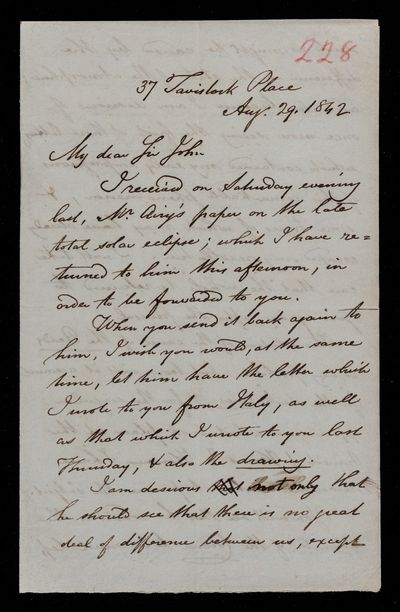 228
37 Tavistock Place
Aug. 29. 1842
My dear Sir John
I received on Saturday evening
last, Mr Airy's paper on the late
total solar eclipse; which I have re=
turned to him this afternoon, in
order to be forwarded to you.
When you send it back again to
him, I wish you would, at the same
time, let him have the letter which
I wrote to you from Italy, as well
as that which I wrote to you last
Thursday, & also the drawing.
I am desirous not only that
he should see that there is no great
deal of difference between us, except